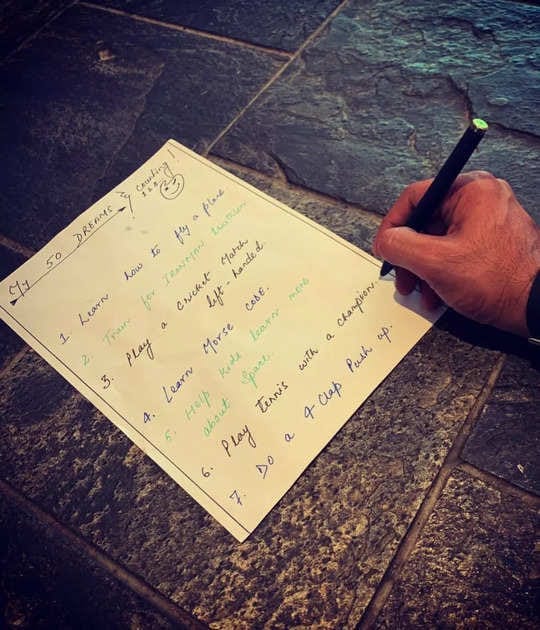 My 50 DREAMS & Counting!
1 Learn how to fly a plane
2 Train for IRONMAN triathlon
3. Play a Cricket Match
left-handed.
4. Learn Morse CODE.
5. Help kids learn more
about space.
6. Play tennis with a champion.
7. Do a 4-Clap Push up.